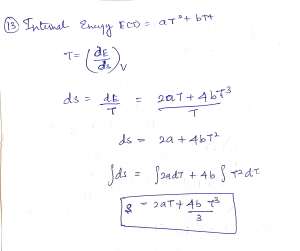 ⑬ Internal Energy E(T) = aT² + bT⁴
T = (dE/ds)_V
ds = dE/T = 2aT + 4bT³/T
ds = 2a + 4bT²
∫ds = ∫2adT + 4b ∫T²dT
S = 2aT + 4b T³/3